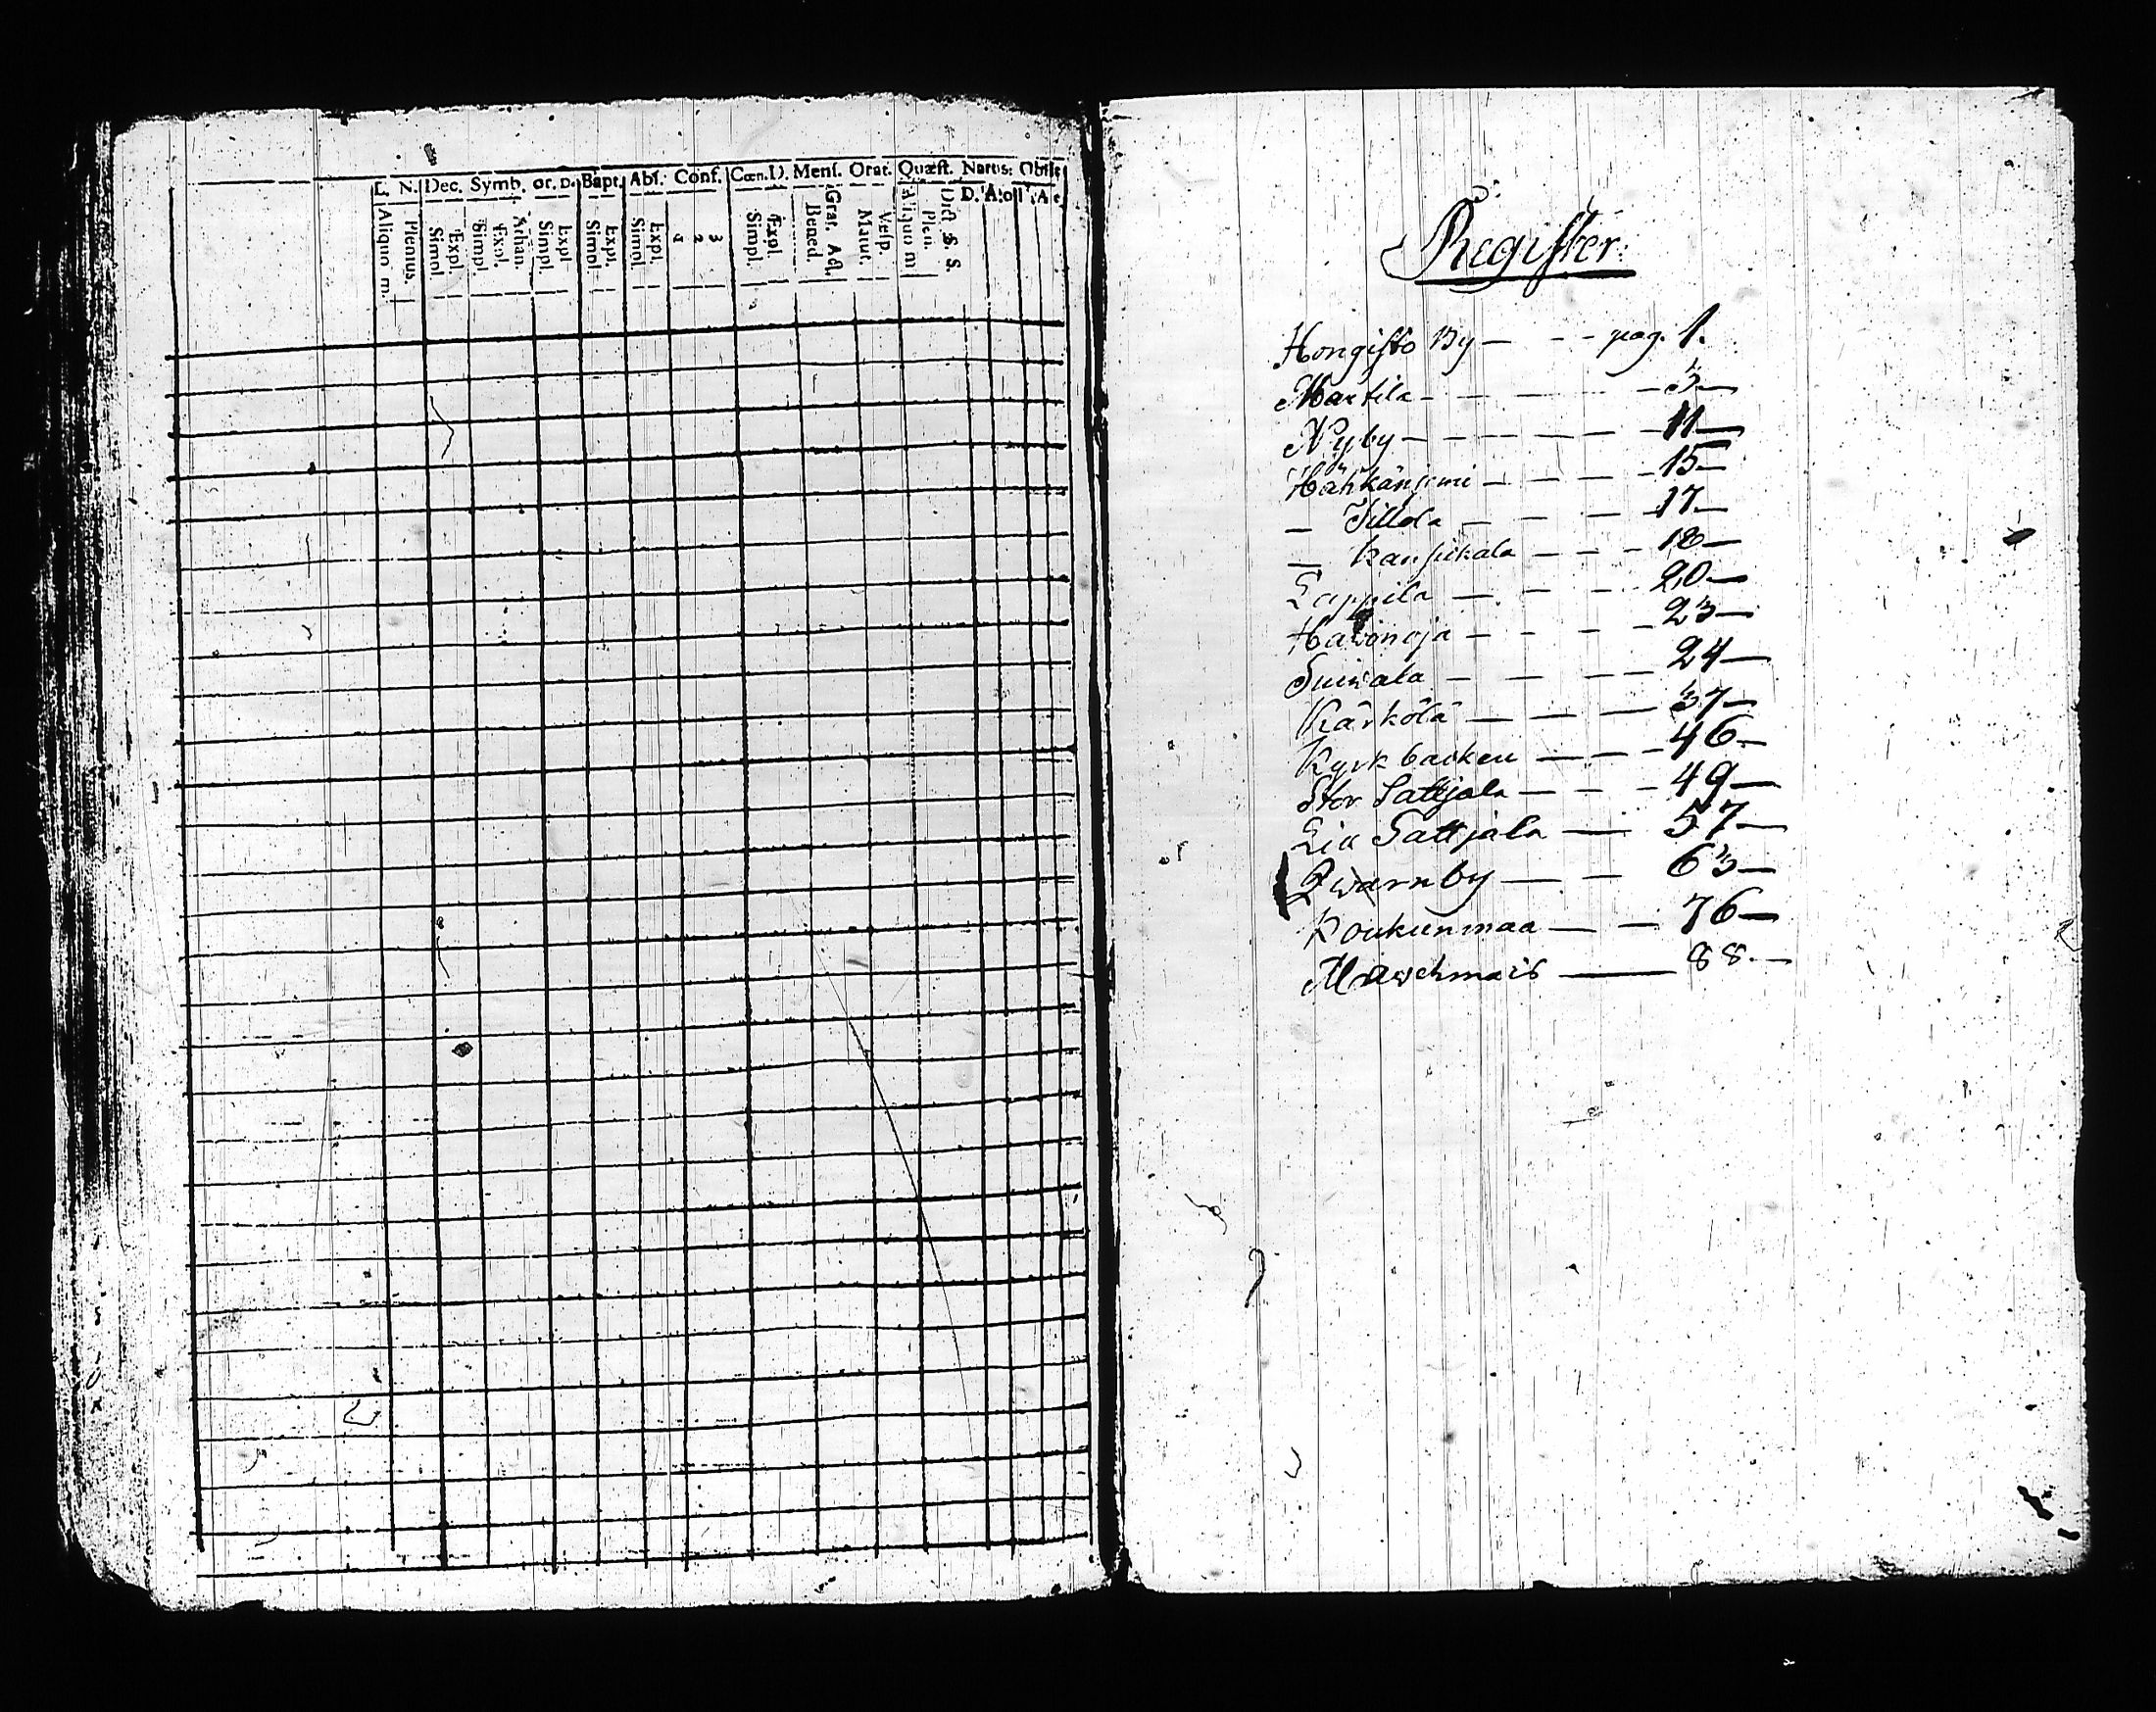 L. N. Dec. Symb. Or. D. Bapt. Abs. Conf. Cœn. D. Menſ. Orat. Quæſt. Natus: Obiit:
Aliquo m. Plenius. Simpl. Expl. Simpl. Expl. Athan. Simpl. Expl. Simpl. Expl. Simpl. Expl. 1 2 3 Simpl. Expl. Bened. Grat. Act. Matut. Veſp. Aliquo m Plen. Dict. S. S. D. A:o
Regiſter.
Hongiſto By — - - pag. 1.
Martila - - — - 3—
Nyby — - - — — - 11—
Hähkäniemi — - — - 15—
— Tillola — — — - 17—
— Kaupikala — - - 18—
Lappila — - - - 20—
Hawonoja — - - - 23—
Suiwala — — — — 24—
Kärkölä — — — 37—
Kyrkbacken — — - 46—
Stor Sattjala — - - 49—
Lia Sattjala — — 57—
Qwarnby — — 63—
Koukunmaa — — 76—
88.—